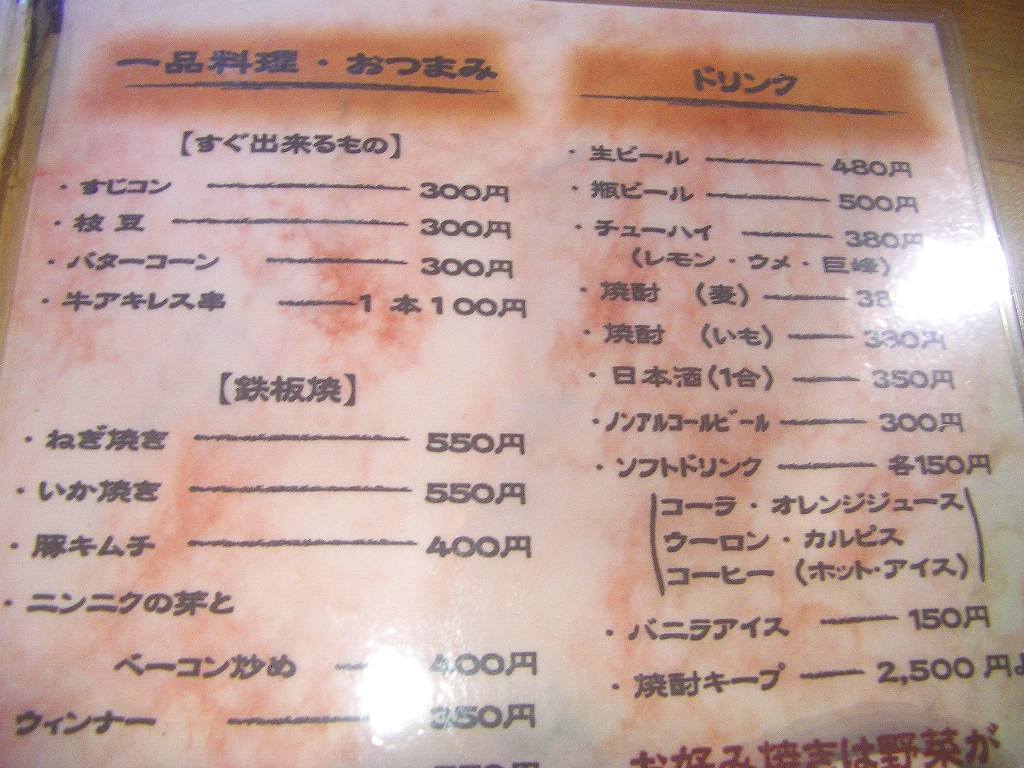 一品料理・おつまみ
【すぐ出来るもの】
・すじコン 300円
・枝豆 300円
・バターコーン 300円
・牛アキレス串 1本100円
【鉄板焼】
・ねぎ焼き 550円
・いか焼き 550円
・豚キムチ 400円
・ニンニクの芽と
ベーコン炒め 400円
ウィンナー 350円
ドリンク
・生ビール 480円
・瓶ビール 500円
・チューハイ 380円
(レモン・ウメ・巨峰)
・焼酎 (麦)
・焼酎 (いも)
・日本酒(1合) 350円
・ノンアルコールビール 300円
・ソフトドリンク 各150円
コーラ・オレンジジュース
ウーロン・カルピス
コーヒー (ホット・アイス)
・バニラアイス 150円
・焼酎キープ 2,500円
お好み焼きは野菜が